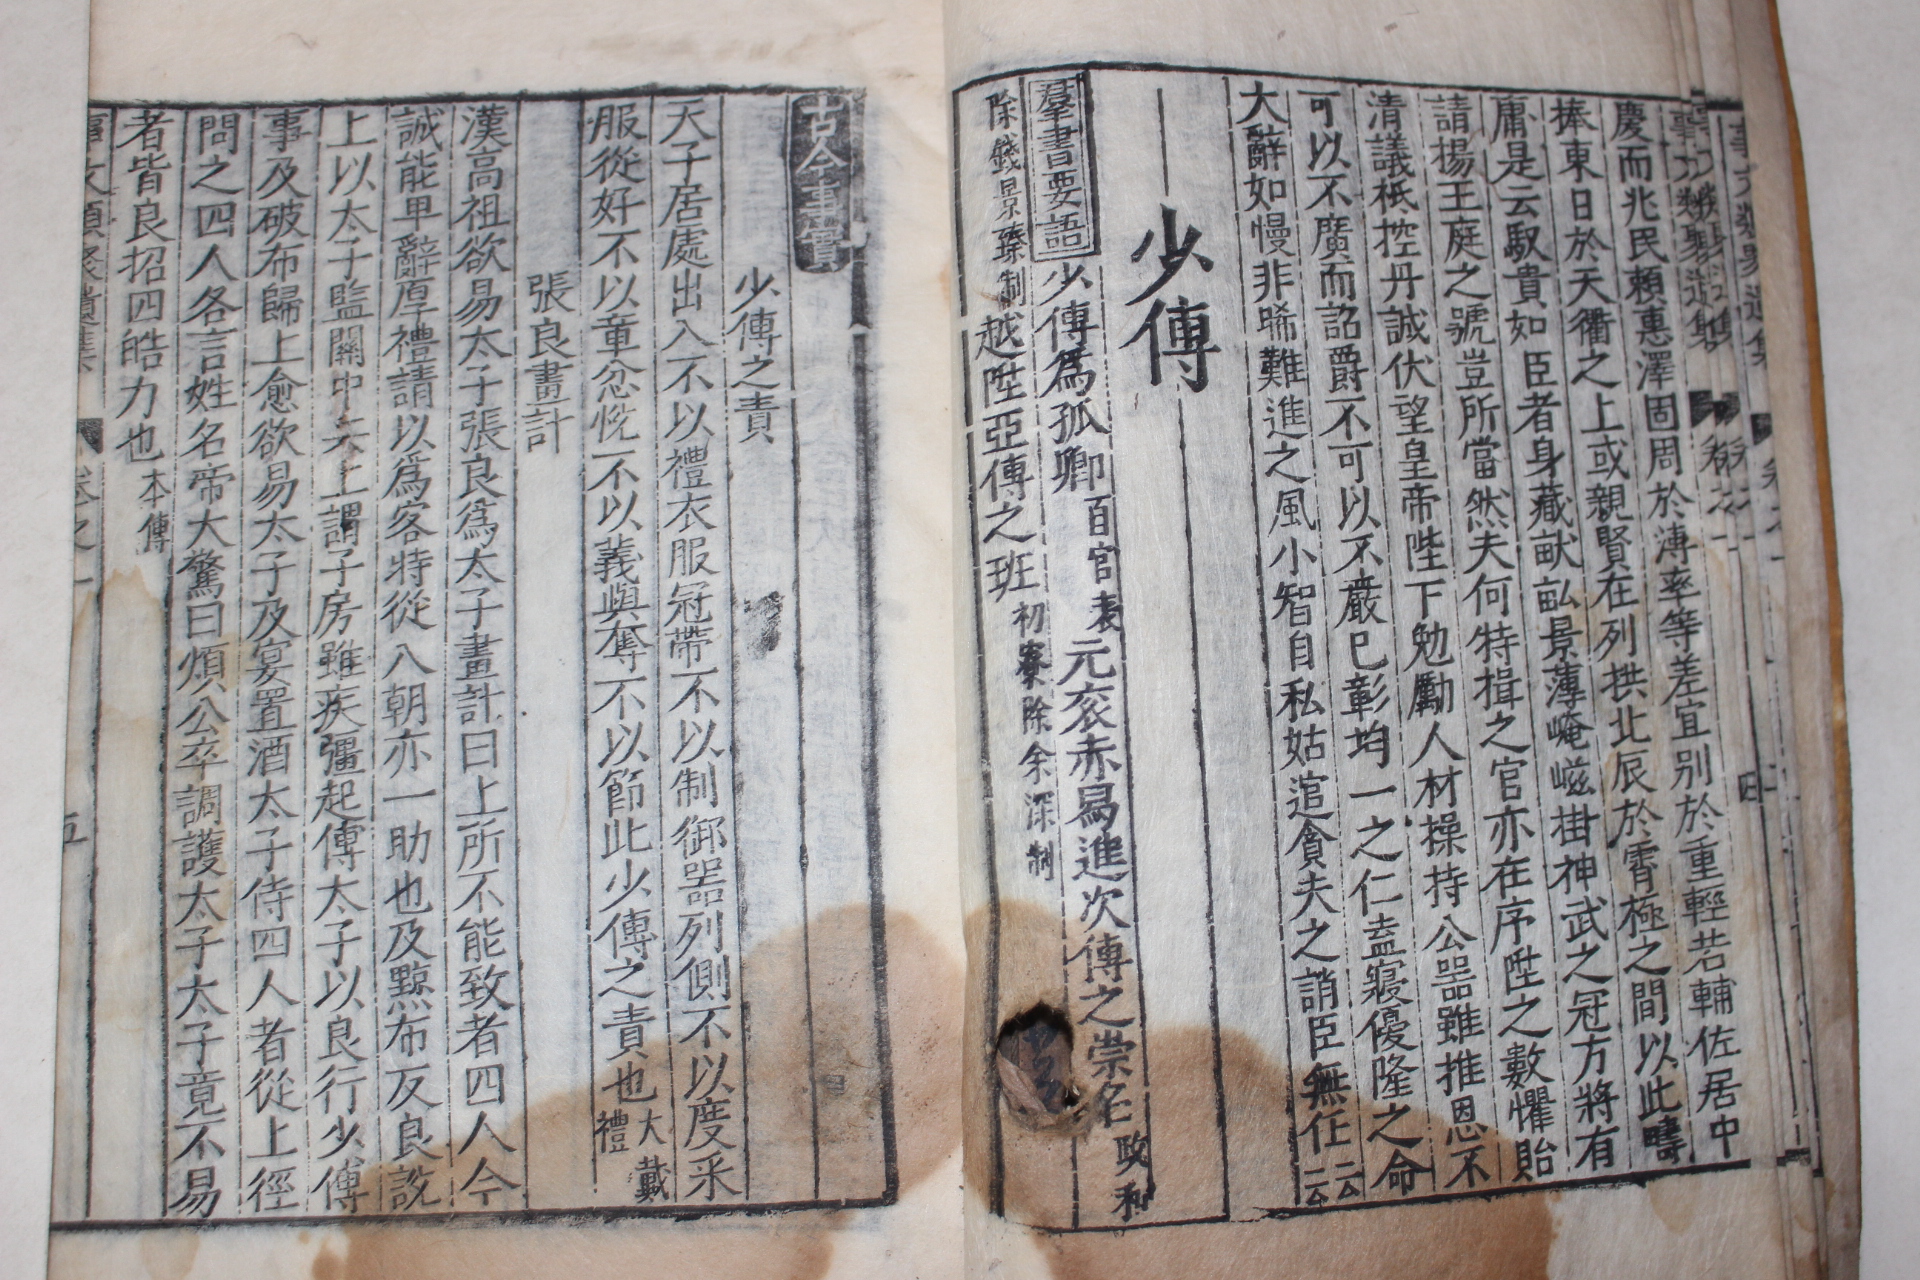 慶而兆民賴惠澤固周於溥率等差宜別於重輕若輔佐居中
捧東日於天衢之上或親賢在列拱北辰於霄極之間以此疇
庸是云馭貴如臣者身藏畎畝景薄崦嵫掛神武之冠方將有
請揚王庭之號豈所當然夫何特揖之官亦在序陞之數懼貽
清議祗控丹誠伏望皇帝陛下勉勵人材操持公器雖推恩不
可以不廣而詔爵不可以不嚴巳彰均一之仁盍寢優隆之命
大辭如慢非晞難進之風小智自私姑逭貪夫之誚臣無任云云
少傅
羣書要語 少傅爲孤卿 百官表 元衮赤舄進次傅之崇名 政和
除錢景臻制 越陞亞傅之班 初寮除余深制
古今事實
少傅之責
天子居處出入不以禮衣服冠帶不以制御器列側不以度采
服從好不以章忿恱不以義與奪不以節此少傅之責也 大戴禮
張良畫計
漢高祖欲易太子張良爲太子畫計曰上所不能致者四人今
誠能卑辭厚禮請以爲客特從入朝亦一助也及黥布反良說
上以太子監關中兵上謂子房雖疾彊起傅太子以良行少傅
事及破布歸上愈欲易太子及宴置酒太子侍四人者從上徑
問之四人各言姓名帝大驚曰煩公卒調護太子太子竟不易
者皆良招四皓力也 本傳
事文類聚遺集 卷之一 五